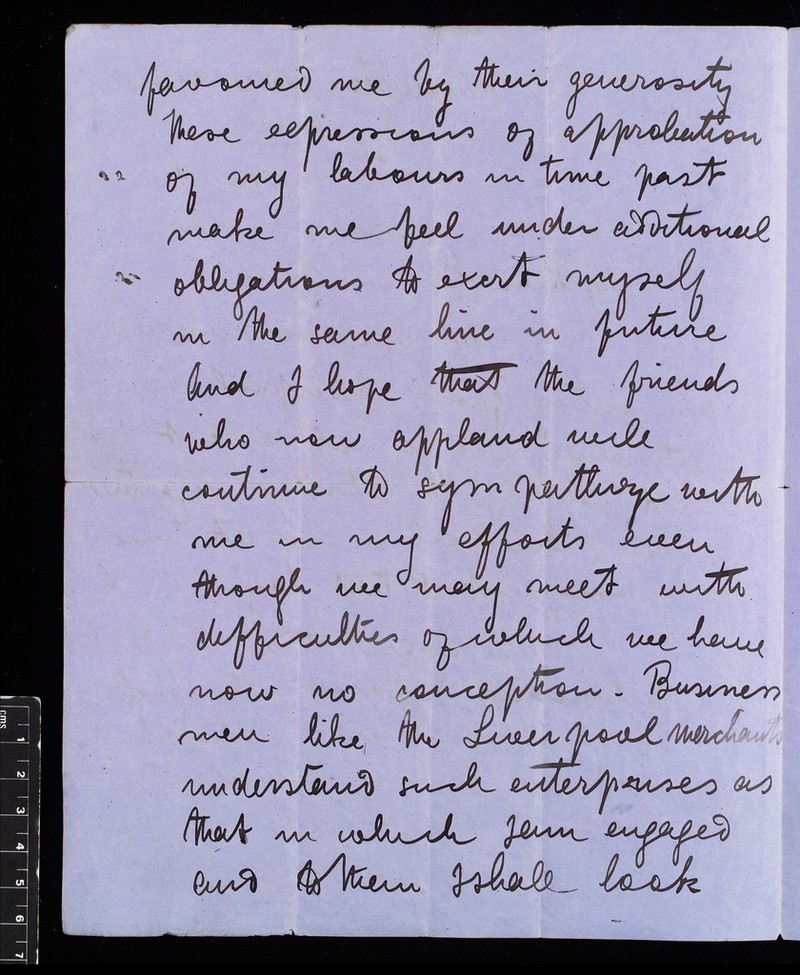 favoured me by their generosity
These expressions of approbation
of my labours in time past
make me feel under additional
obligations to exert myself
in the same line in future
And I hope that the friends
who now appland will
continue to sympathize with
me in my efforts even
though we may meet with
difficulties of which we have
now no conception. Business
men like the Liverpool merchants
understand such enterprises as
that in which I am engaged
and to them I shall look
cms
1
2
3
4
5
6
7